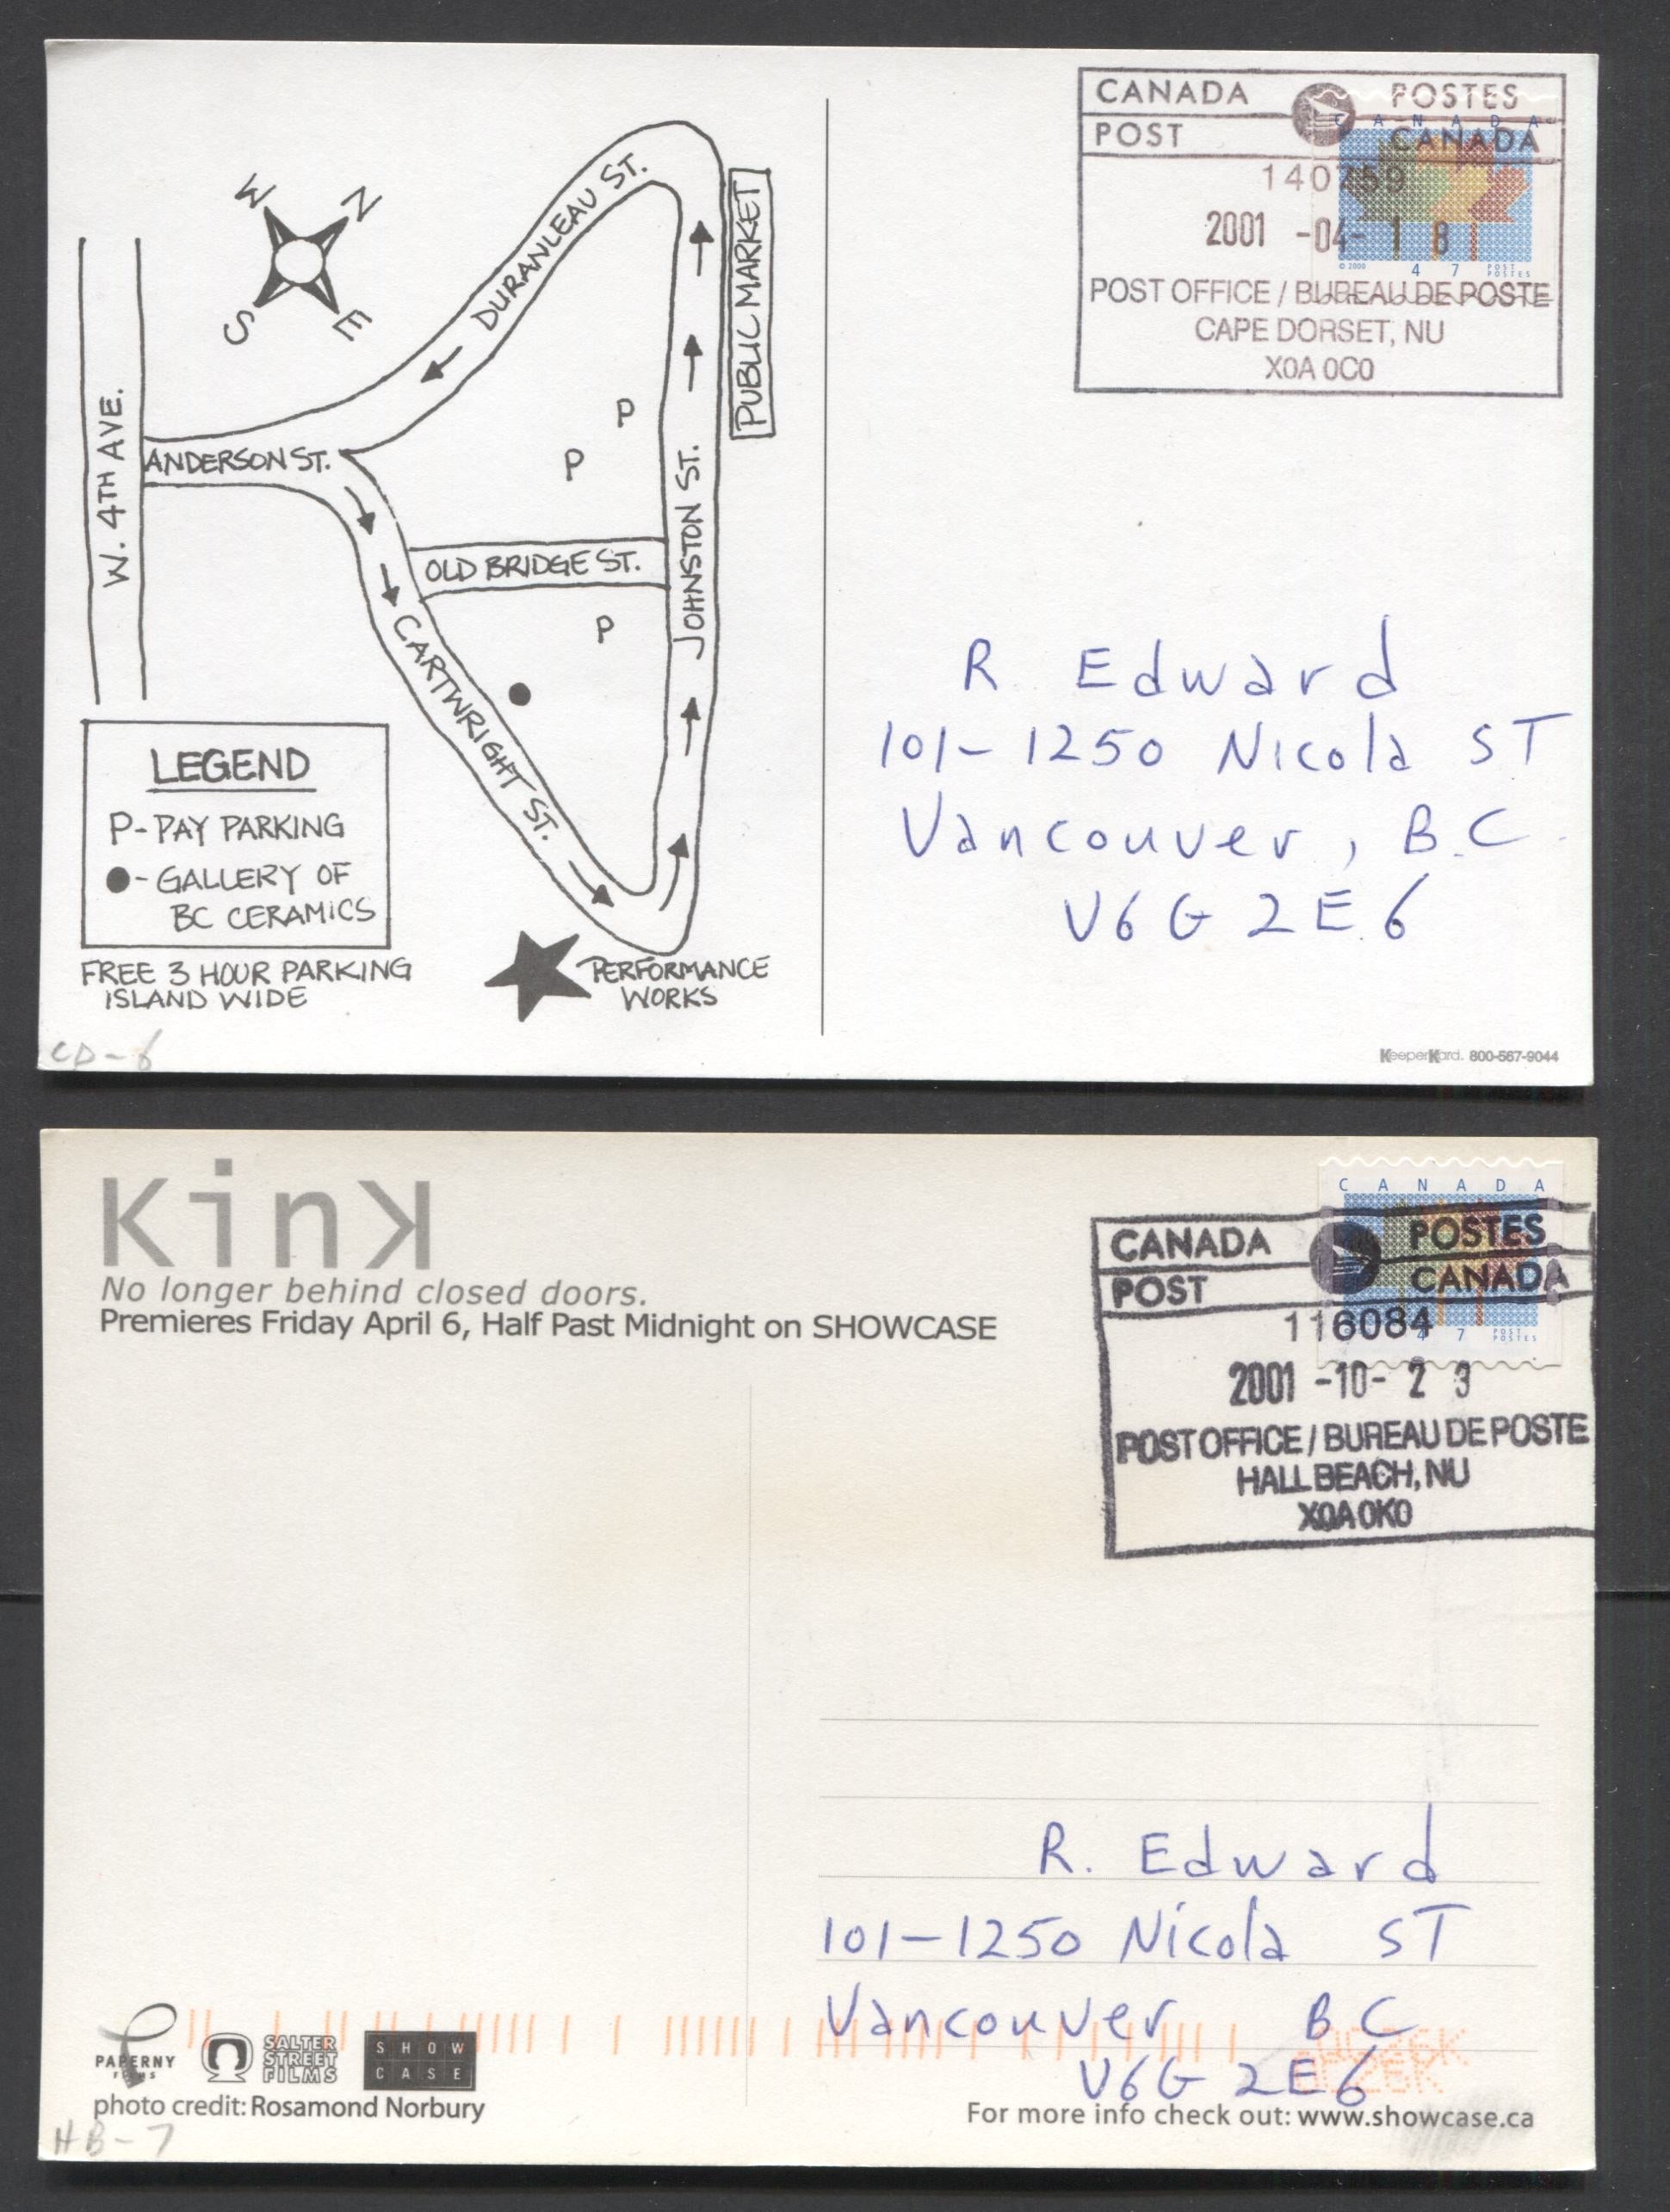 CANADA POST
POSTES CANADA
CANADA
140759
2001 -04- 1 8
© 2000 47 POST POSTES
POST OFFICE / BUREAU DE POSTE
CAPE DORSET, NU
X0A 0C0
W N
S E
DURANLEAU ST.
PUBLIC MARKET
W. 4TH AVE.
ANDERSON ST.
P
P
OLD BRIDGE ST.
JOHNSTON ST.
P
CARTWRIGHT ST.
LEGEND
P - PAY PARKING
● - GALLERY OF
BC CERAMICS
FREE 3 HOUR PARKING
ISLAND WIDE
PERFORMANCE
WORKS
R Edward
101-1250 Nicola ST
Vancouver, B.C.
V6G 2E6
CD-6
KeeperKard. 800-567-9044
Kink
No longer behind closed doors.
Premieres Friday April 6, Half Past Midnight on SHOWCASE
CANADA
CANADA POST
POSTES CANADA
116084
47 POST POSTES
2001 -10- 2 3
POST OFFICE / BUREAU DE POSTE
HALL BEACH, NU
X0A 0K0
R. Edward
101-1250 Nicola ST
Vancouver BC
V6G 2E6
PAPERNY FILMS
SALTER STREET FILMS
SHOWCASE
photo credit: Rosamond Norbury
For more info check out: www.showcase.ca
HB-7